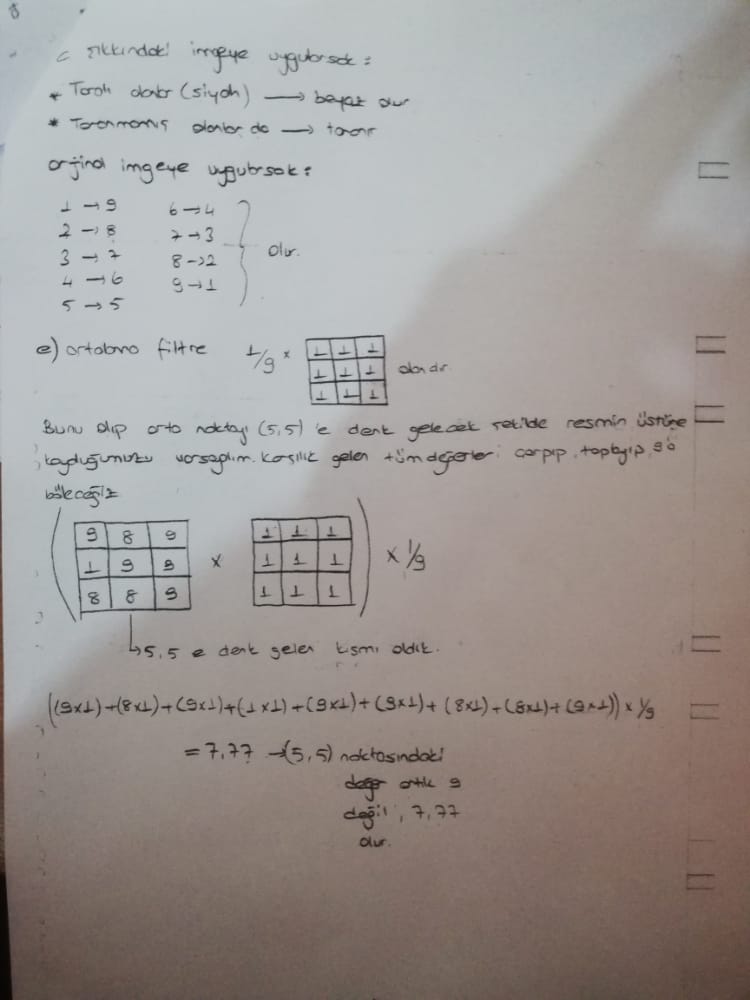 c şıkkındaki imgeye uygularsak :
* Taralı olanlar (siyah) → beyaz olur
* Taranmamış olanlar da → taranır
orjinal imgeye uygularsak :
1 → 9 6 → 4
2 → 8 7 → 3
3 → 7 8 → 2 olur.
4 → 6 9 → 1
5 → 5
e) ortalama filtre 1/9 x
1 1 1
1 1 1 olandır.
1 1 1
Bunu alıp orta noktayı (5,5)'e denk gelecek şekilde resmin üstüne
koyduğumuzu varsayalım. Karşılık gelen tüm değerleri çarpıp, toplayıp, 9'a
böleceğiz
9 8 9 1 1 1
1 9 9 x 1 1 1 x 1/9
8 8 9 1 1 1
→ 5,5 e denk gelen kısmı aldık.
((9x1)+(8x1)+(9x1)+(1x1)+(9x1)+(9x1)+(8x1)+(8x1)+(9x1)) x 1/9
= 7,77 → (5,5) noktasındaki
değer artık 9
değil, 7,77
olur.